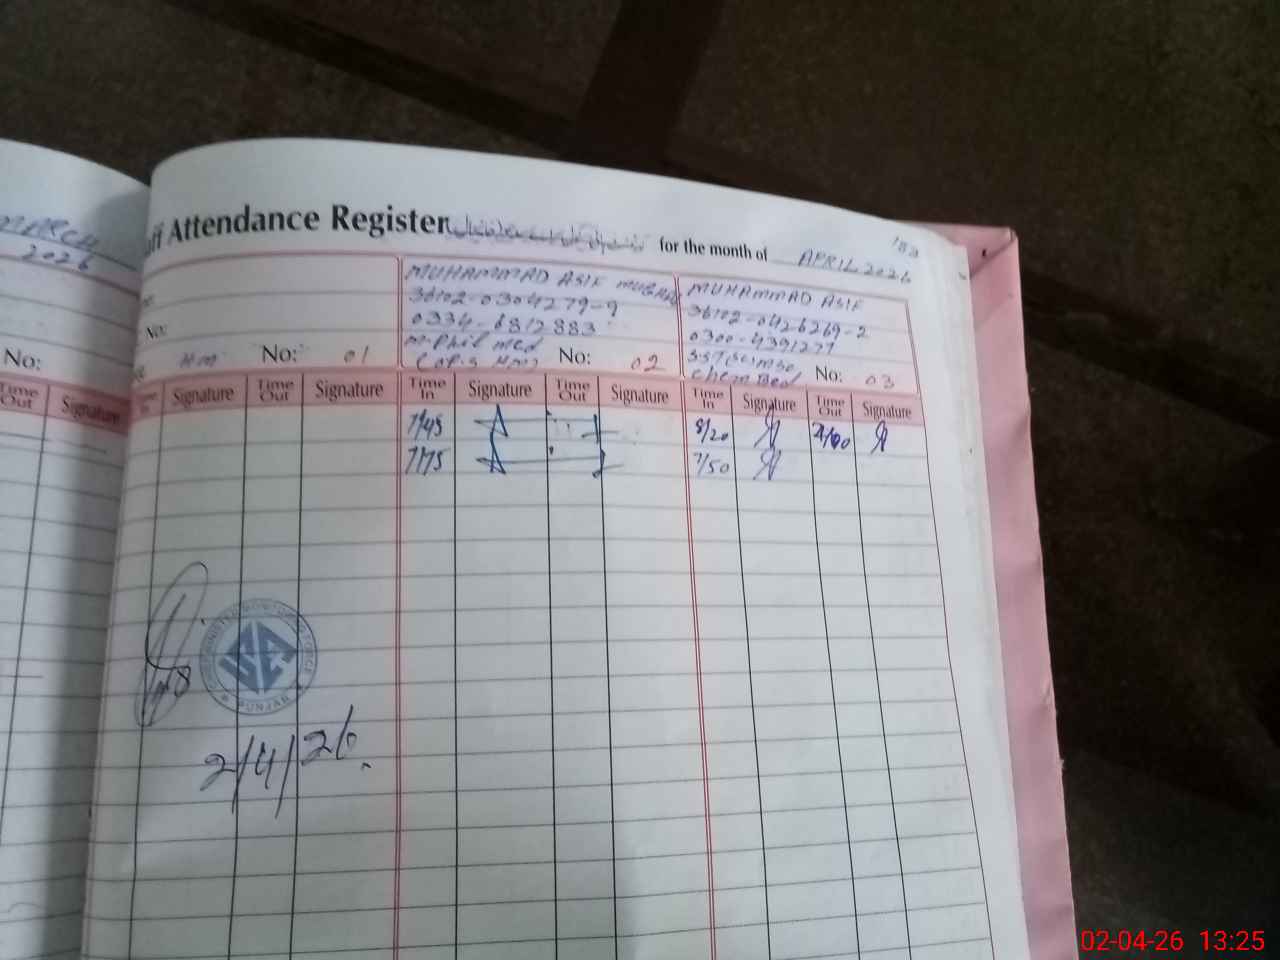 MARCH
2026
ff Attendance Register
for the month of APRIL 2026
183
No:
No:
Hm No: 01
MUHAMMAD ASIF MUGHAL
36102-0304279-9
0334-6812883
M-Phil med
No: 02
MUHAMMAD ASIF
36102-0426269-2
0300-4391277
No: 03
Time Out Signature
In Signature Time Out Signature Time In Signature Time Out Signature Time In Signature Time Out Signature
7/45 8/20 2/00
7/75 7/50
PUNJAB
2/4/26
02-04-26 13:25